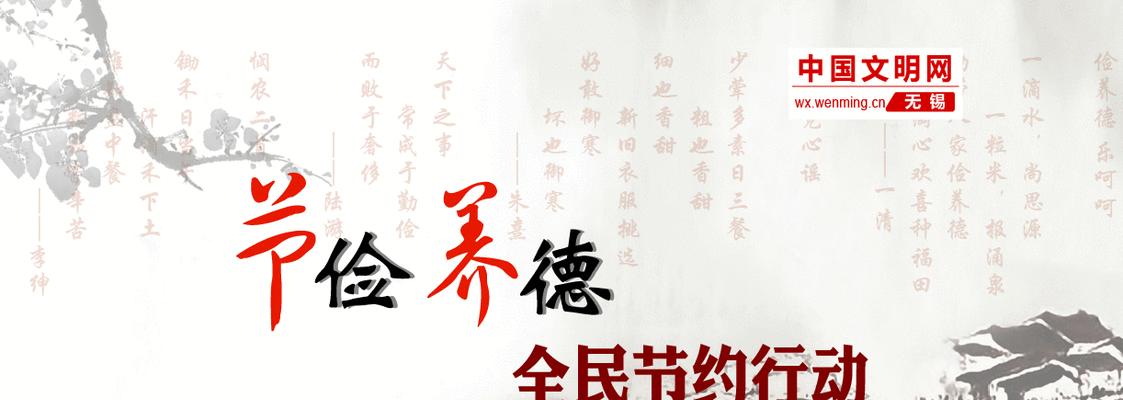 中国文明网
wx.wenming.cn 无锡
俭养德乐呵呵
一滴水，尚思源
一粒米，报涌泉
家俭养德
心欢喜种福田
——一清
心谣
少荤多素日三餐
粗也香甜
细也香甜
新旧衣服挑选
好敢御寒
坏也御寒
——朱熹
天下之事
常成于勤俭
而败于奢侈
——陆游
悯农二
锄禾日
汗禾下土
中餐
辛苦
——李绅
节俭养德
全民节约行动